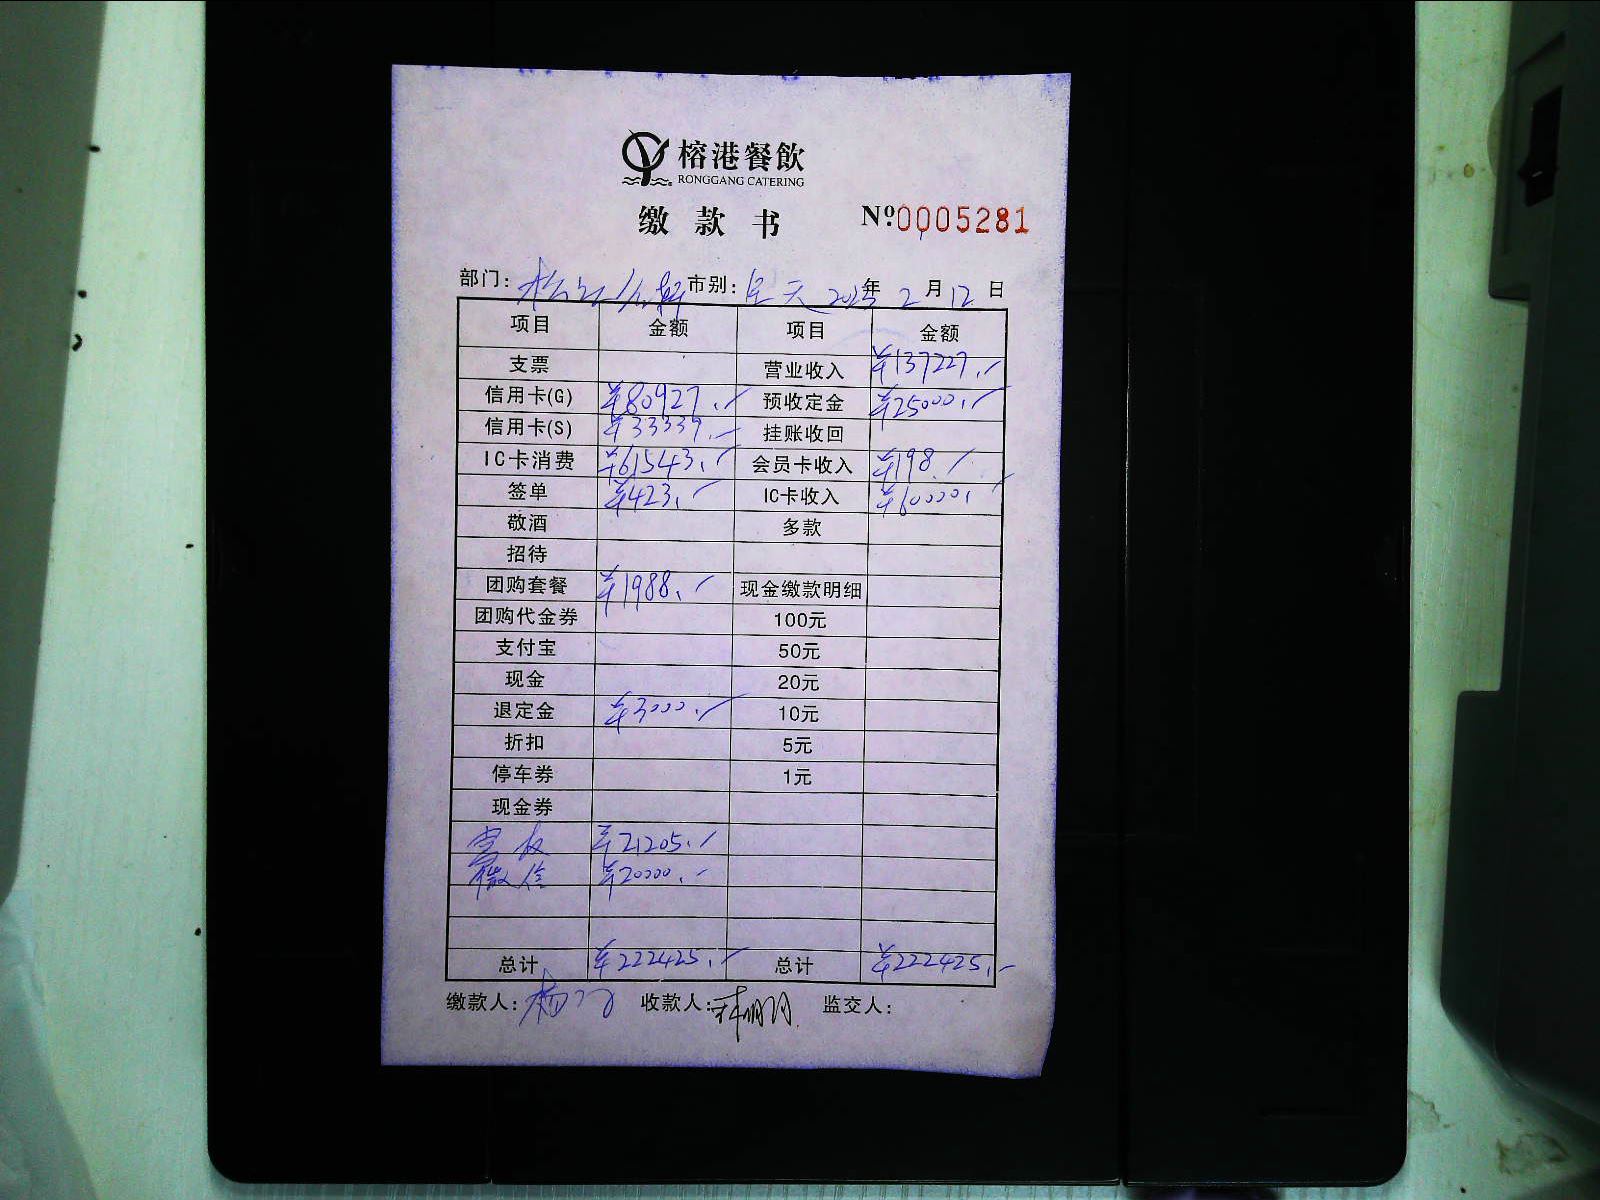 榕港餐飲
RONGGANG CATERING
缴款书 Nº0005281
部门: 松江 市别: 全天 年 2 月 12 日
项目 金额 项目 金额
支票 营业收入 ¥137227.-
信用卡(G) ¥80927.- 预收定金 ¥25000.-
信用卡(S) ¥33339.- 挂账收回
IC卡消费 ¥61543.- 会员卡收入 ¥198.-
签单 ¥423.- IC卡收入 ¥60000.-
敬酒 多款
招待
团购套餐 ¥1988.- 现金缴款明细
团购代金券 100元
支付宝 50元
现金 20元
退定金 ¥3000.- 10元
折扣 5元
停车券 1元
现金券
¥21205.-
微信 ¥20000.-
总计 ¥222425.- 总计 ¥222425.-
缴款人: 杨 收款人: 监交人: